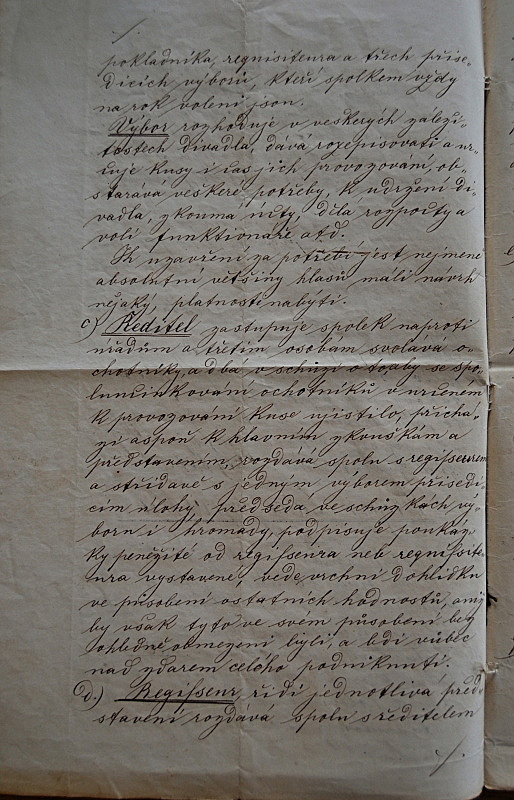 pokladníka, requisiteura a třech přise-
dících výborů, kteří spolkem vždy
na rok voleni jsou.
Výbor rozhoduje v veškerých záleži-
tostech divadla, dává rozepisovati a ur-
čuje kusy i čas jich provozování, ob-
starává veškeré potřeby, k udržení di-
vadla, zkoumá účty, dělá rozpočty a
volí funktionáře atd.
K uzavření za potřebí jest nejméně
absolutní většiny hlasů málí návrh
nějaký, platnosti nabýti.
c) Ředitel zastupuje spolek naproti
úřadům a třetím osobám svolává o-
chotníky, a dbá v schůzi o to aby se spo-
luúčinkování ochotníků v určeném
k provozování kuse ujistilo, přichá-
zí aspoň k hlavním zkouškám a
představením, rozdává spolu s regisseurem
a střídavě s jedným výborem přísedí-
cím úlohy, předsedá ve schůzkách vý-
boru i hromady, podpisuje poukáz-
ky peněžité od regisseura neb requisite-
ura vystavené, vede vrchní dohlídku
ve působení ostatních hodnostů, aniž
by však tyto ve svém působení bez
ohledně obmezeni byli, a bdí vůbec
nad zdarem celého podniknutí.
d.) Regisseur, řídí jednotlivá před-
stavení rozdává spolu s ředitelem